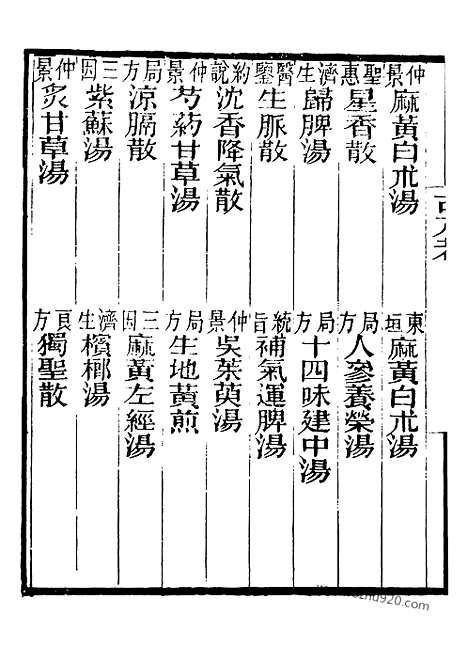 仲景麻黃白朮湯
東垣麻黃白朮湯
聖惠星香散
局方人參養榮湯
濟生歸脾湯
局方十四味建中湯
醫鑒生脈散
統旨補氣運脾湯
約說沈香降氣散
仲景吳茱萸湯
仲景芍葯甘草湯
局方生地黃煎
局方涼膈散
三因麻黃左經湯
三因紫蘇湯
濟生檳榔湯
仲景炙甘草湯
良方獨聖散